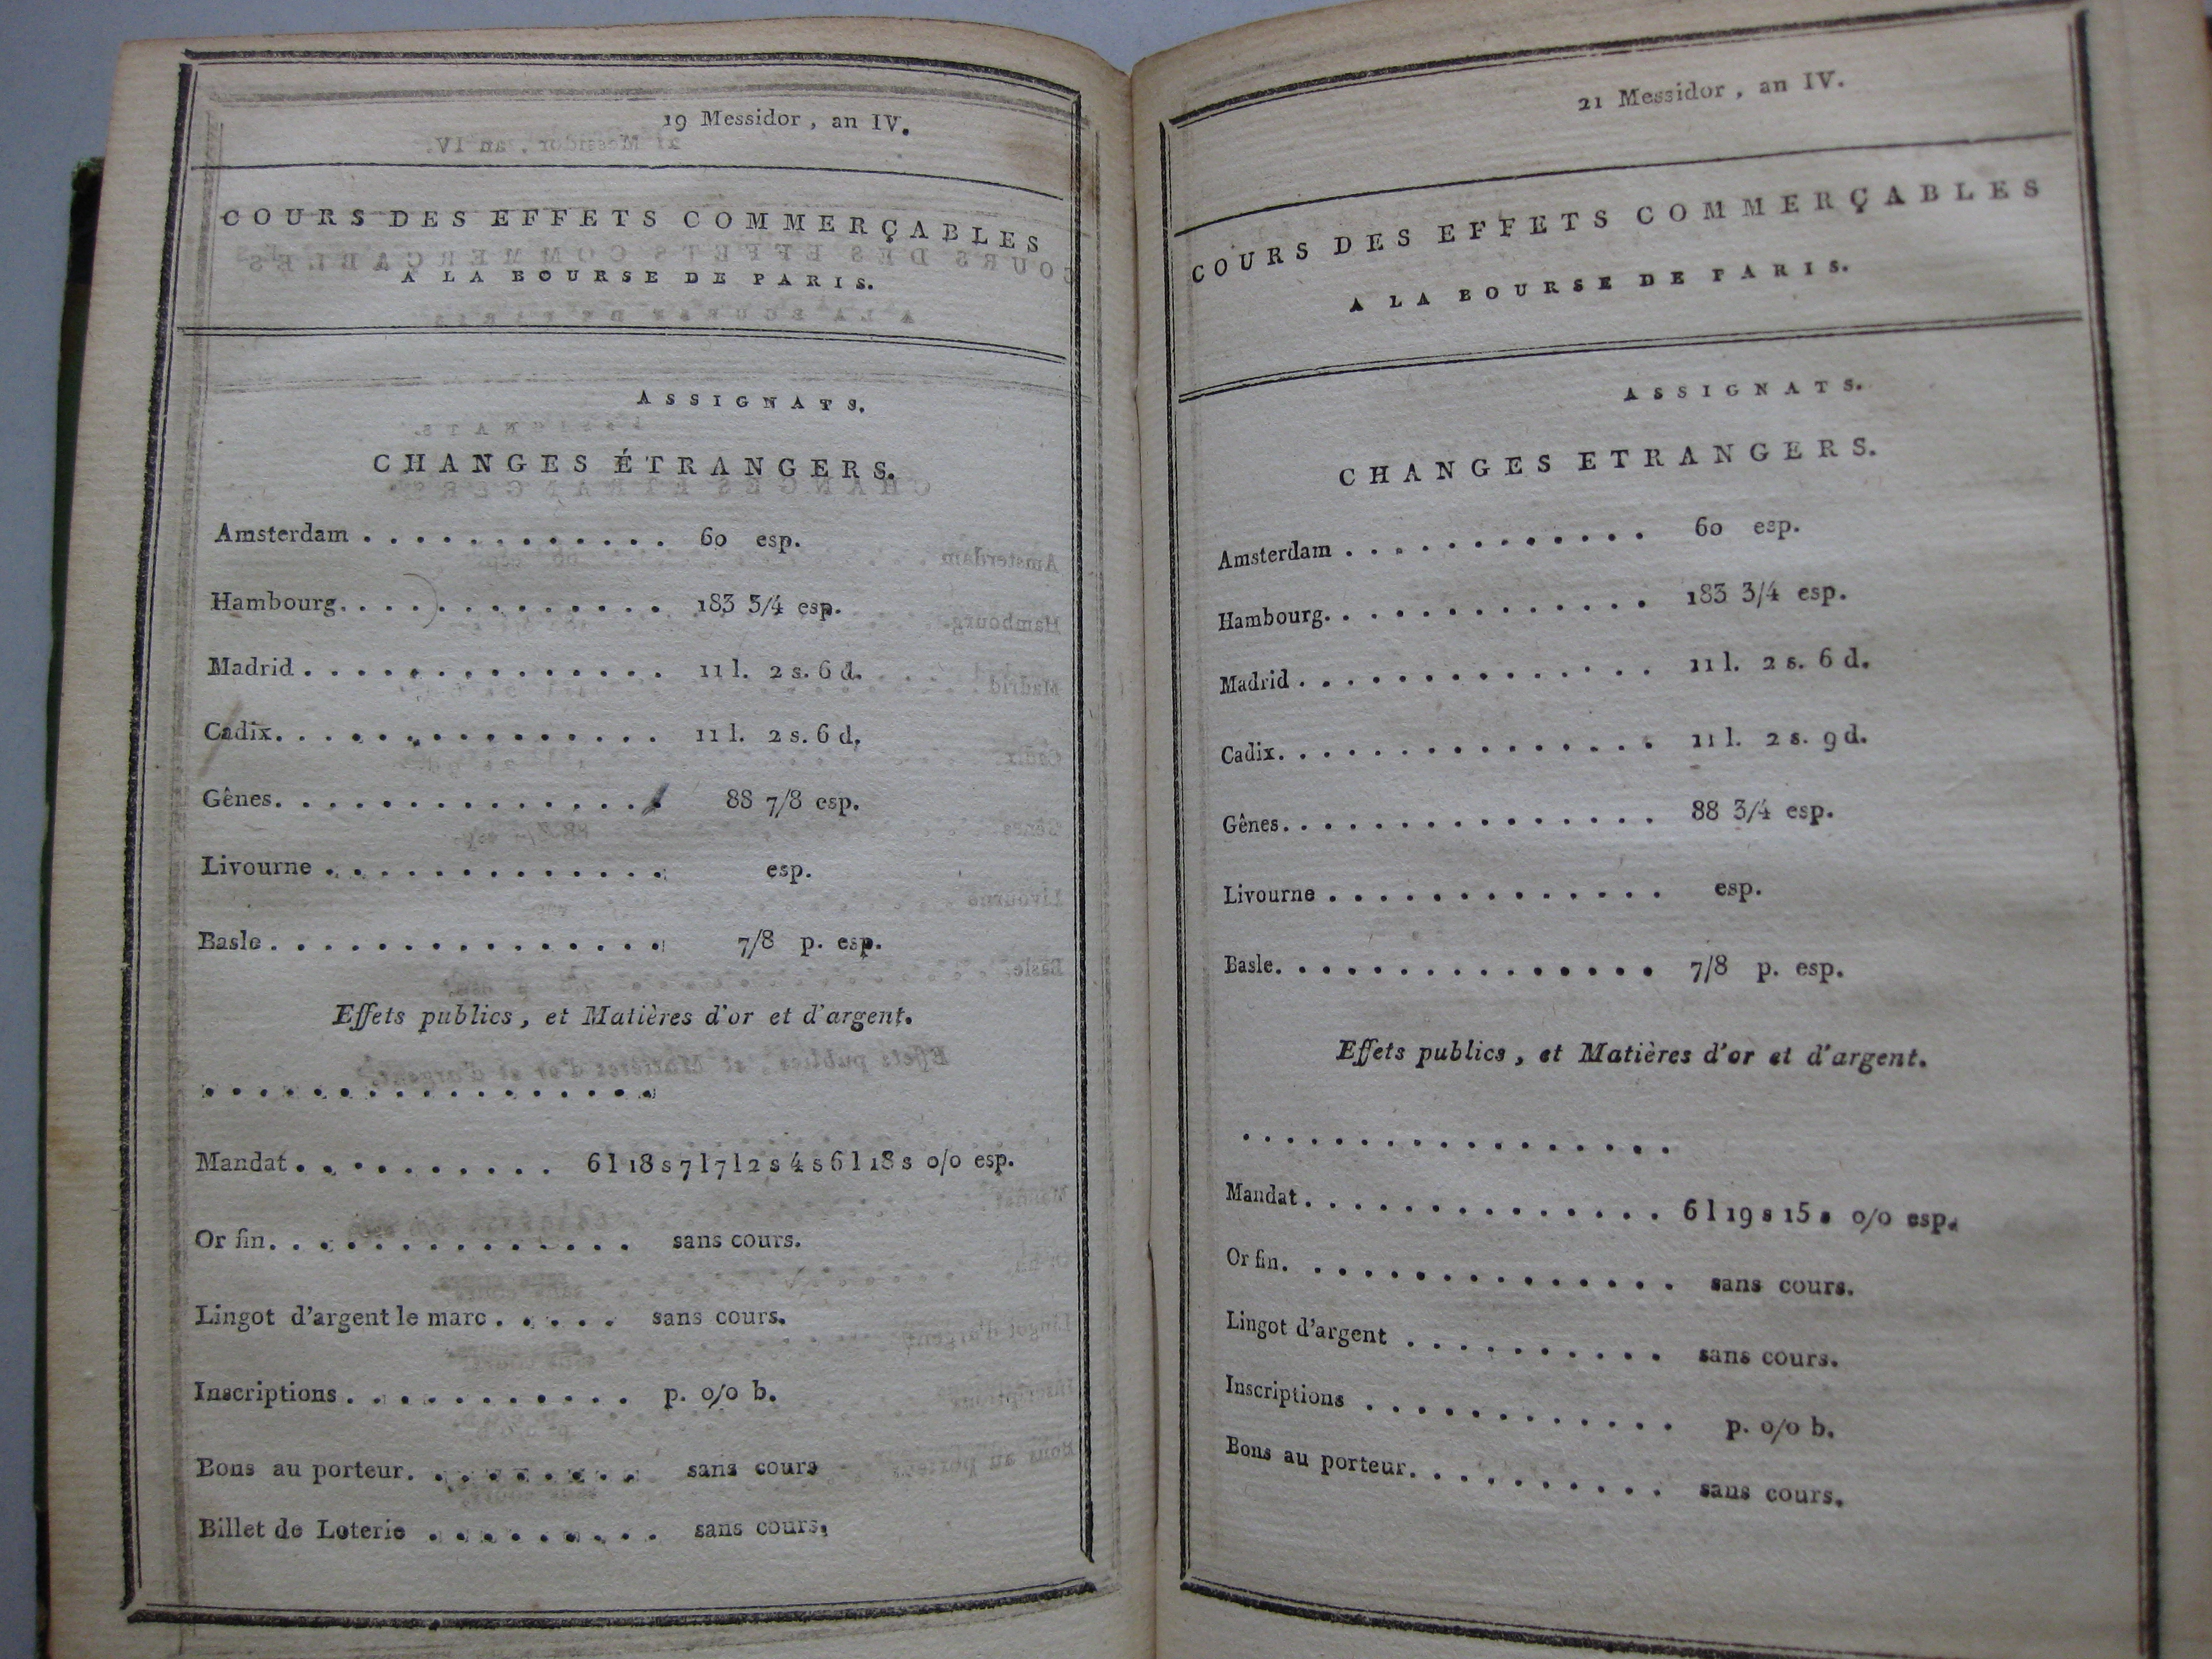 19 Messidor, an IV.
COURS DES EFFETS COMMERÇABLES
A LA BOURSE DE PARIS.
ASSIGNATS.
CHANGES ÉTRANGERS.
Amsterdam . . . . . . . . . . . . 60 esp.
Hambourg. . . . . . . . . . . . . 183 3/4 esp.
Madrid . . . . . . . . . . . . . . 11 l. 2 s. 6 d.
Cadix. . . . . . . . . . . . . . . 11 l. 2 s. 6 d.
Gênes. . . . . . . . . . . . . . . 88 7/8 esp.
Livourne . . . . . . . . . . . . . esp.
Basle . . . . . . . . . . . . . . . 7/8 p. esp.
Effets publics, et Matières d'or et d'argent.
. . . . . . . . . . . . . . . . .
Mandat . . . . . . . . . . 6 l 18 s 7 l 7 l 2 s 4 s 6 l 18 s o/o esp.
Or fin. . . . . . . . . . . . . . sans cours.
Lingot d'argent le marc . . . . . sans cours.
Inscriptions . . . . . . . . . . . p. o/o b.
Bons au porteur. . . . . . . . . sans cours
Billet de Loterie . . . . . . . . . sans cours.
21 Messidor, an IV.
COURS DES EFFETS COMMERÇABLES
A LA BOURSE DE PARIS.
ASSIGNATS.
CHANGES ETRANGERS.
Amsterdam . . . . . . . . . . . . 60 esp.
Hambourg. . . . . . . . . . . . . 183 3/4 esp.
Madrid . . . . . . . . . . . . . . 11 l. 2 s. 6 d.
Cadix. . . . . . . . . . . . . . . 11 l. 2 s. 9 d.
Gênes. . . . . . . . . . . . . . . 88 3/4 esp.
Livourne . . . . . . . . . . . . . esp.
Basle. . . . . . . . . . . . . . . 7/8 p. esp.
Effets publics, et Matières d'or et d'argent.
. . . . . . . . . . . . . . . . .
Mandat . . . . . . . . . . . . . . 6 l 19 s 15 s o/o esp.
Or fin. . . . . . . . . . . . . . . sans cours.
Lingot d'argent . . . . . . . . . . sans cours.
Inscriptions . . . . . . . . . . . . p. o/o b.
Bons au porteur. . . . . . . . . . sans cours.